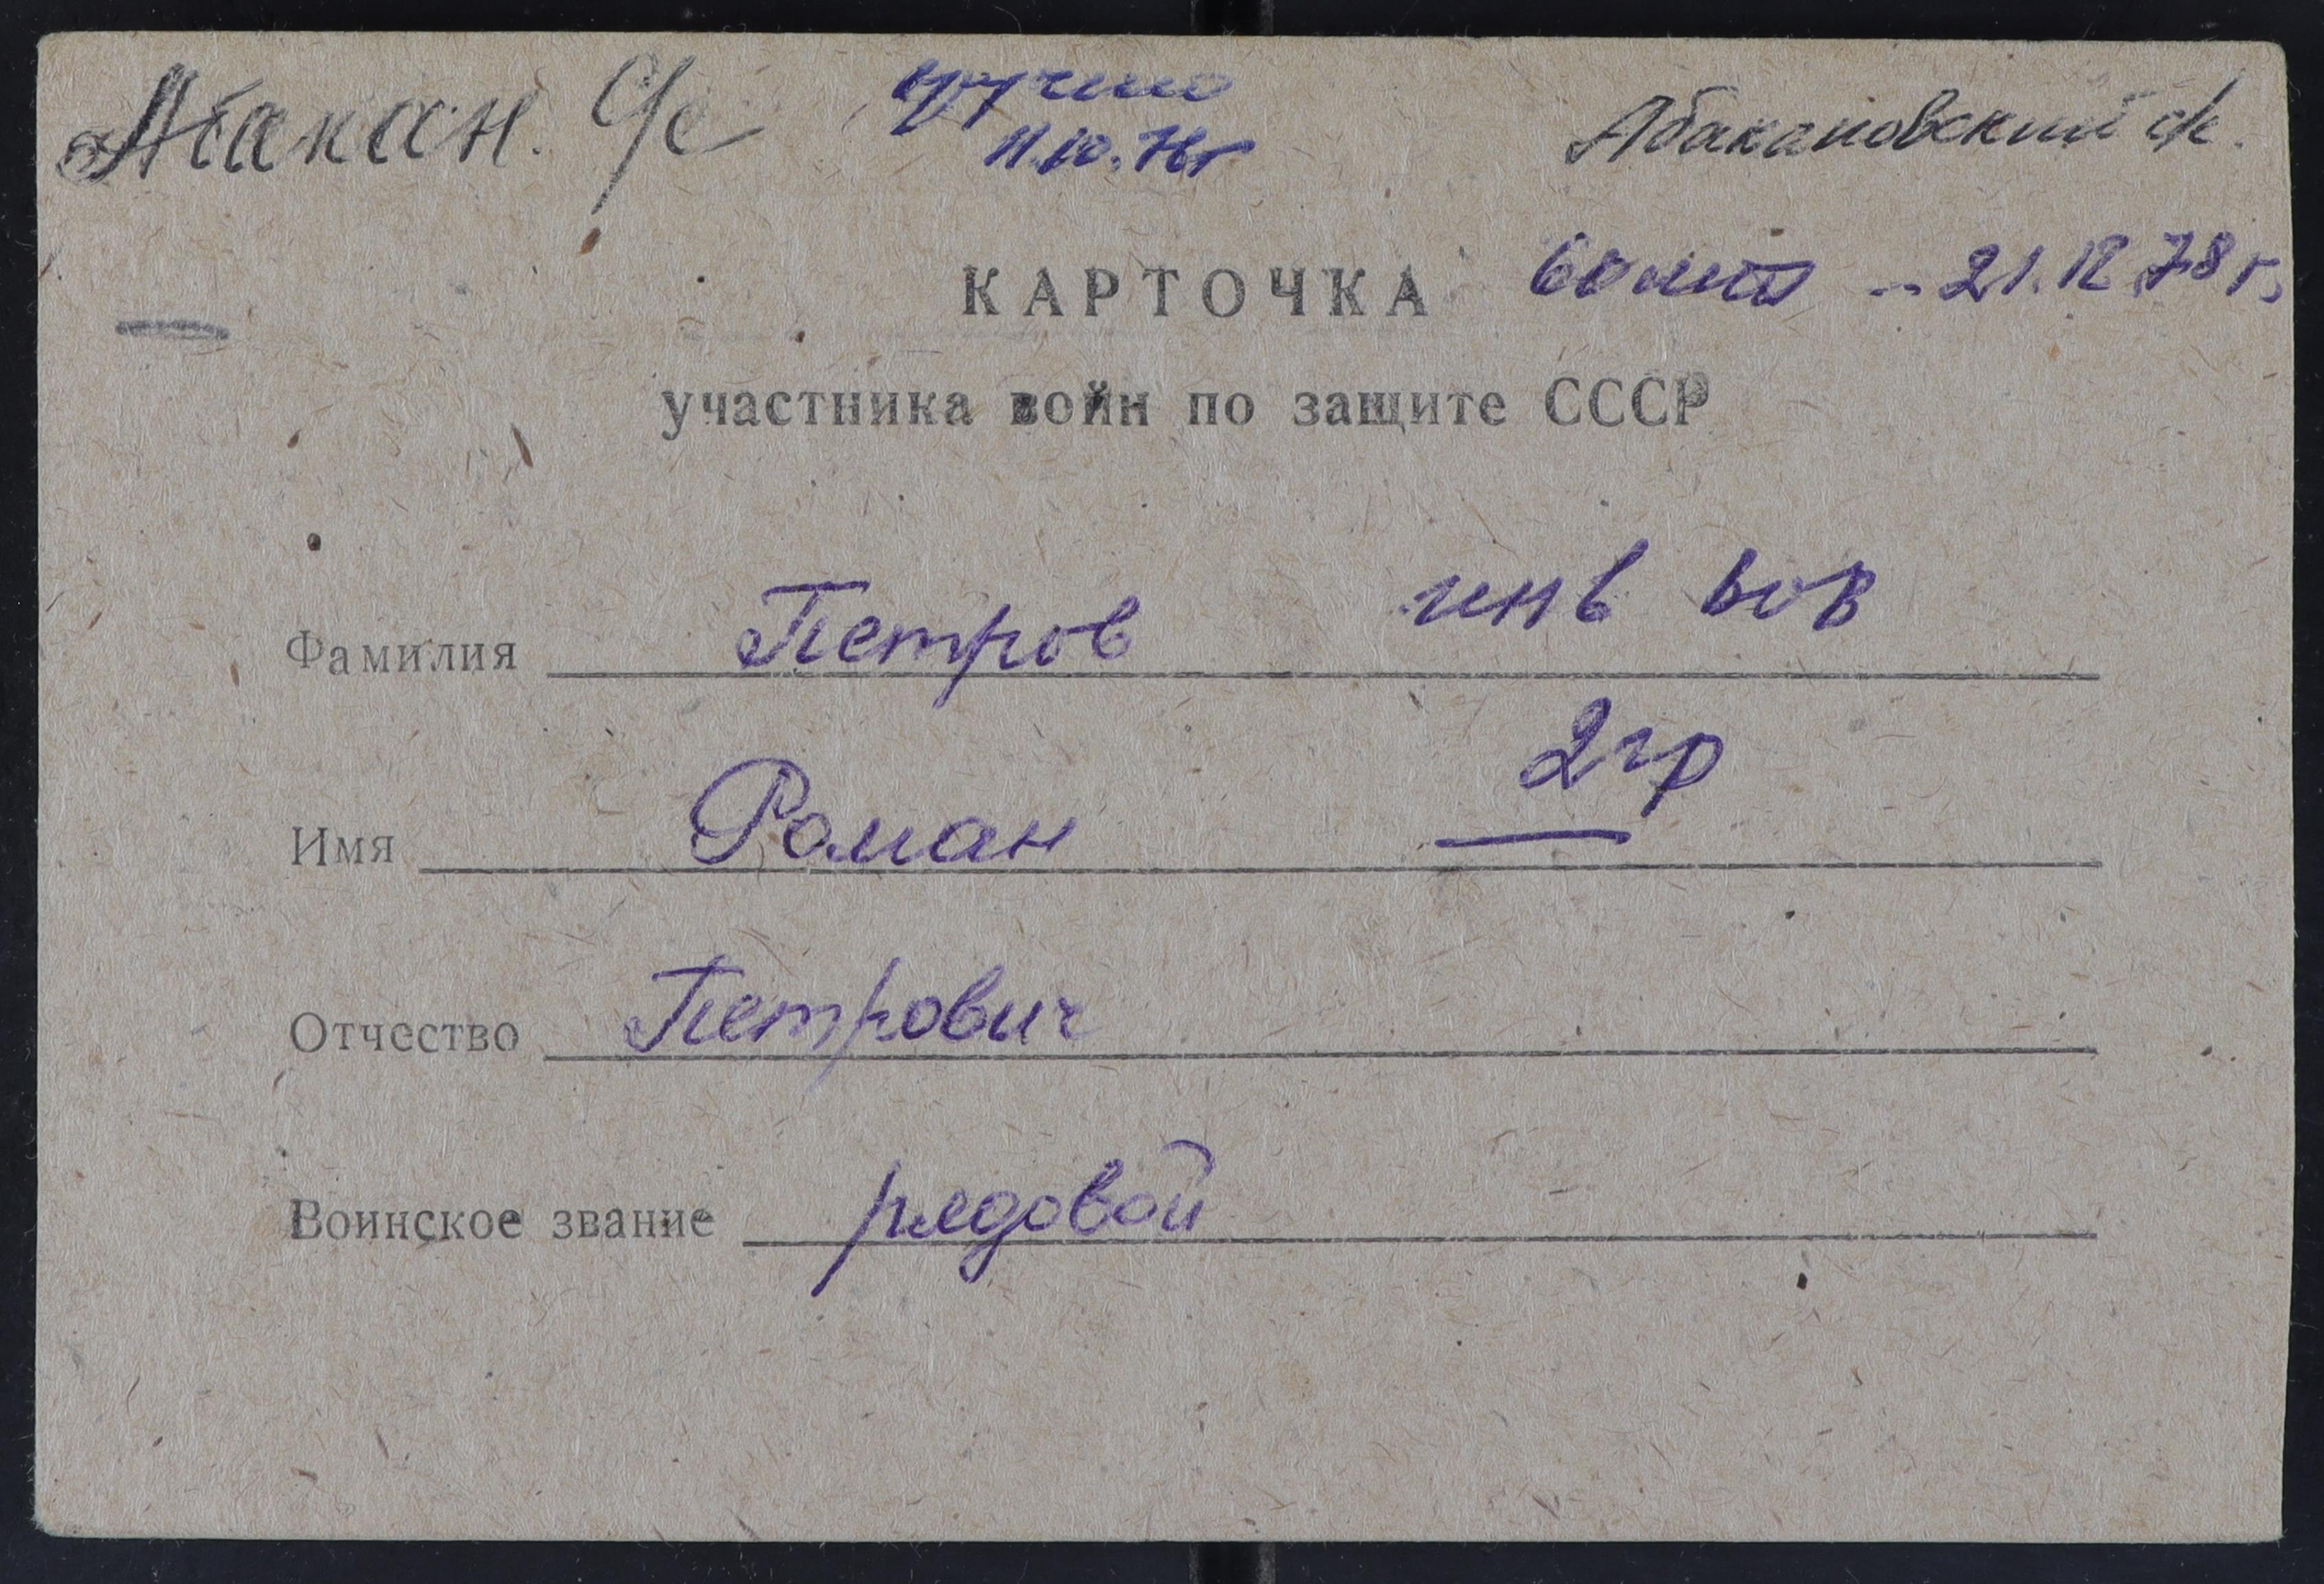 Абакан. с/с вручено Абакановский с/с.
11.10.76г
КАРТОЧКА 60 лет -- 21.12.78 г.
участника войн по защите СССР
Фамилия Петров инв ВОВ
2гр
Имя Роман
Отчество Петрович
Воинское звание рядовой